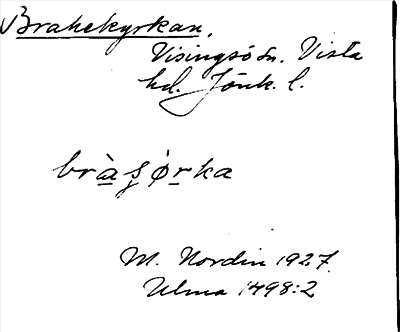 Brahekyrkan,
Visingsö sn. Vista
hd. Jönk. l.
bràʂǿrka
M. Nordin 1927.
Ulma 1498:2